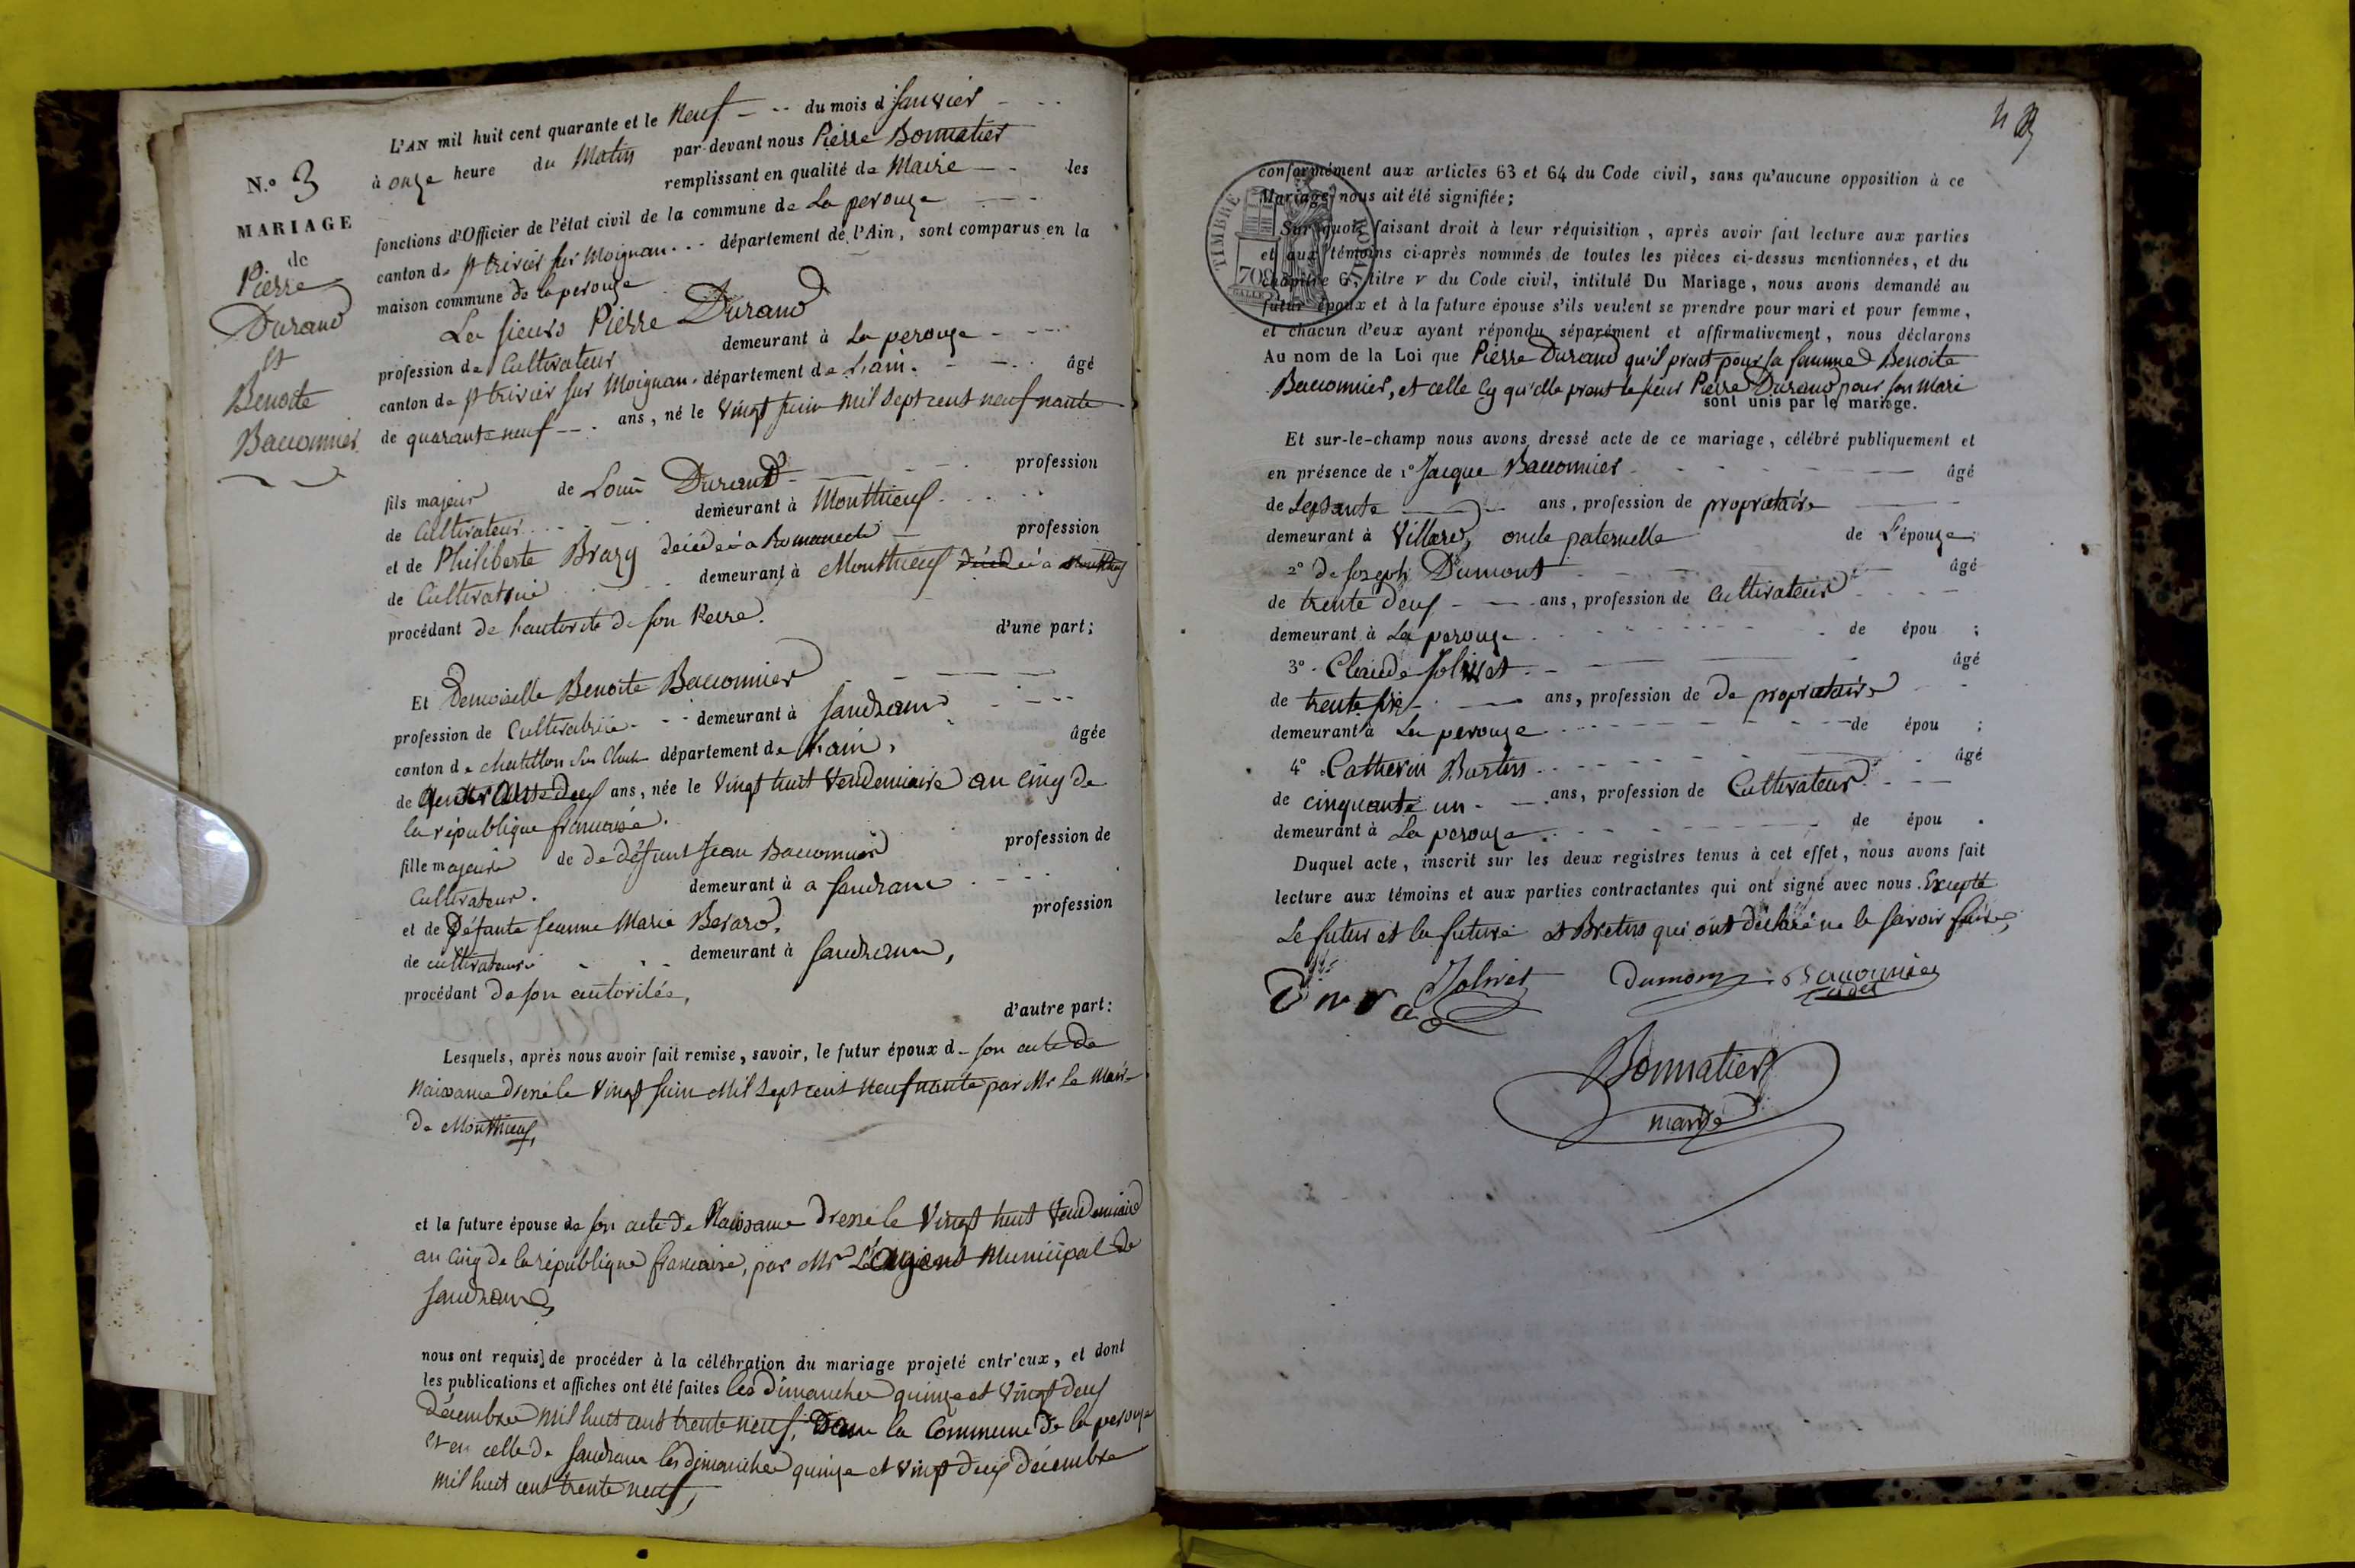 L'AN mil huit cent quarante et le neuf du mois d Janvier
à onze heure du Matin par-devant nous Pierre Bonnatier
remplissant en qualité de Maire les
fonctions d'Officier de l'état civil de la commune de La perouze
canton de St trivier sur Moignan département de l'Ain, sont comparus en la
maison commune de la perouze
N.o 3
MARIAGE
de
Pierre
Durand
et
Benoite
Bacconnier
Le sieurs Pierre Durand
profession de Cultivateur demeurant à La perouze
canton de St trivier sur Moignan département de L'ain. âgé
de quarante neuf ans, né le Vingt Juin mil sept cent neuf nante
fils majeur de Louis Durand profession
de Cultivateur demeurant à Monthieux
et de Philiberte Brazy décédée a Romaneche profession
de Cultivatrice demeurant à Monthieux décédé a Monthieux
procédant de l'autorité de son Perre. d'une part;
Et Demoiselle Benoite Bacconnier
profession de Cultivatrice demeurant à Sandrans
canton de chatillon sur Chala département de L'ain, âgée
de quarante deux ans, née le Vingt huit Vendemiaire an cinq de
la république francaise.
fille majeure de de défunt Jean Bacconnier profession de
Cultivateur. demeurant à a Sandrans
et de Défante Jeanne Marie Berard. profession
de cultivateure demeurant à Sandrans,
procédant de son autoritée, d'autre part:
Lesquels, après nous avoir fait remise, savoir, le futur époux d son acte de
Naissance dressé le Vingt Juin Mil Sept cent neuf nante par Mr le Maire
de Monthieux,
et la future épouse de son acte de Naissance Dressé le Vingt huit Vendemiaire
an cinq de la république francaise, par Mr L'Agent Municipal de
Sandrans,
nous ont requis de procéder à la célébration du mariage projeté entr'eux, et dont
les publications et affiches ont été faites les Dimanche quinze et Vingt deux
décembre mil huit cent trente neuf, Dans la Commune de la perouze
et en celle de Sandrans les dimanche quinze et vingt deux décembre
mil huit cent trente neuf,
conformément aux articles 63 et 64 du Code civil, sans qu'aucune opposition à ce
Mariage nous ait été signifiée;
Sur quoi, faisant droit à leur réquisition, après avoir fait lecture aux parties
et aux témoins ci-après nommés de toutes les pièces ci-dessus mentionnées, et du
chapitre 6, titre v du Code civil, intitulé Du Mariage, nous avons demandé au
futur époux et à la future épouse s'ils veulent se prendre pour mari et pour femme,
et chacun d'eux ayant répondu séparément et affirmativement, nous déclarons
TIMBRE ROYAL
70
Au nom de la Loi que Pierre Durand qu'il prent pour sa famme Benoite
Bacconnier, et celle Cy qu'elle prent le sieur Pierre Durand pour son Mari
sont unis par le mariage.
Et sur-le-champ nous avons dressé acte de ce mariage, célébré publiquement et
en présence de 1o Jacque Bacconnier âgé
de Septante ans, profession de propriétaire
demeurant à Villard, oncle paternelle de L'épouze;
2o de Joseph Dumont âgé
de trente deux ans, profession de Cultivateur
demeurant à La perouze de épou ;
3o Claude Jolivet âgé
de trente six ans, profession de de propriétaire
demeurant à La perouze de épou ;
4o Catherin Burtin âgé
de cinquante un ans, profession de Cultivateur
demeurant à La perouze de épou .
Duquel acte, inscrit sur les deux registres tenus à cet effet, nous avons fait
lecture aux témoins et aux parties contractantes qui ont signé avec nous. Excepté
Le futur et la future et Bretin qui ont déclaré ne le savoir faire,
Jolivet Dumont Bacconnier
cadet
Bonnatier
maire